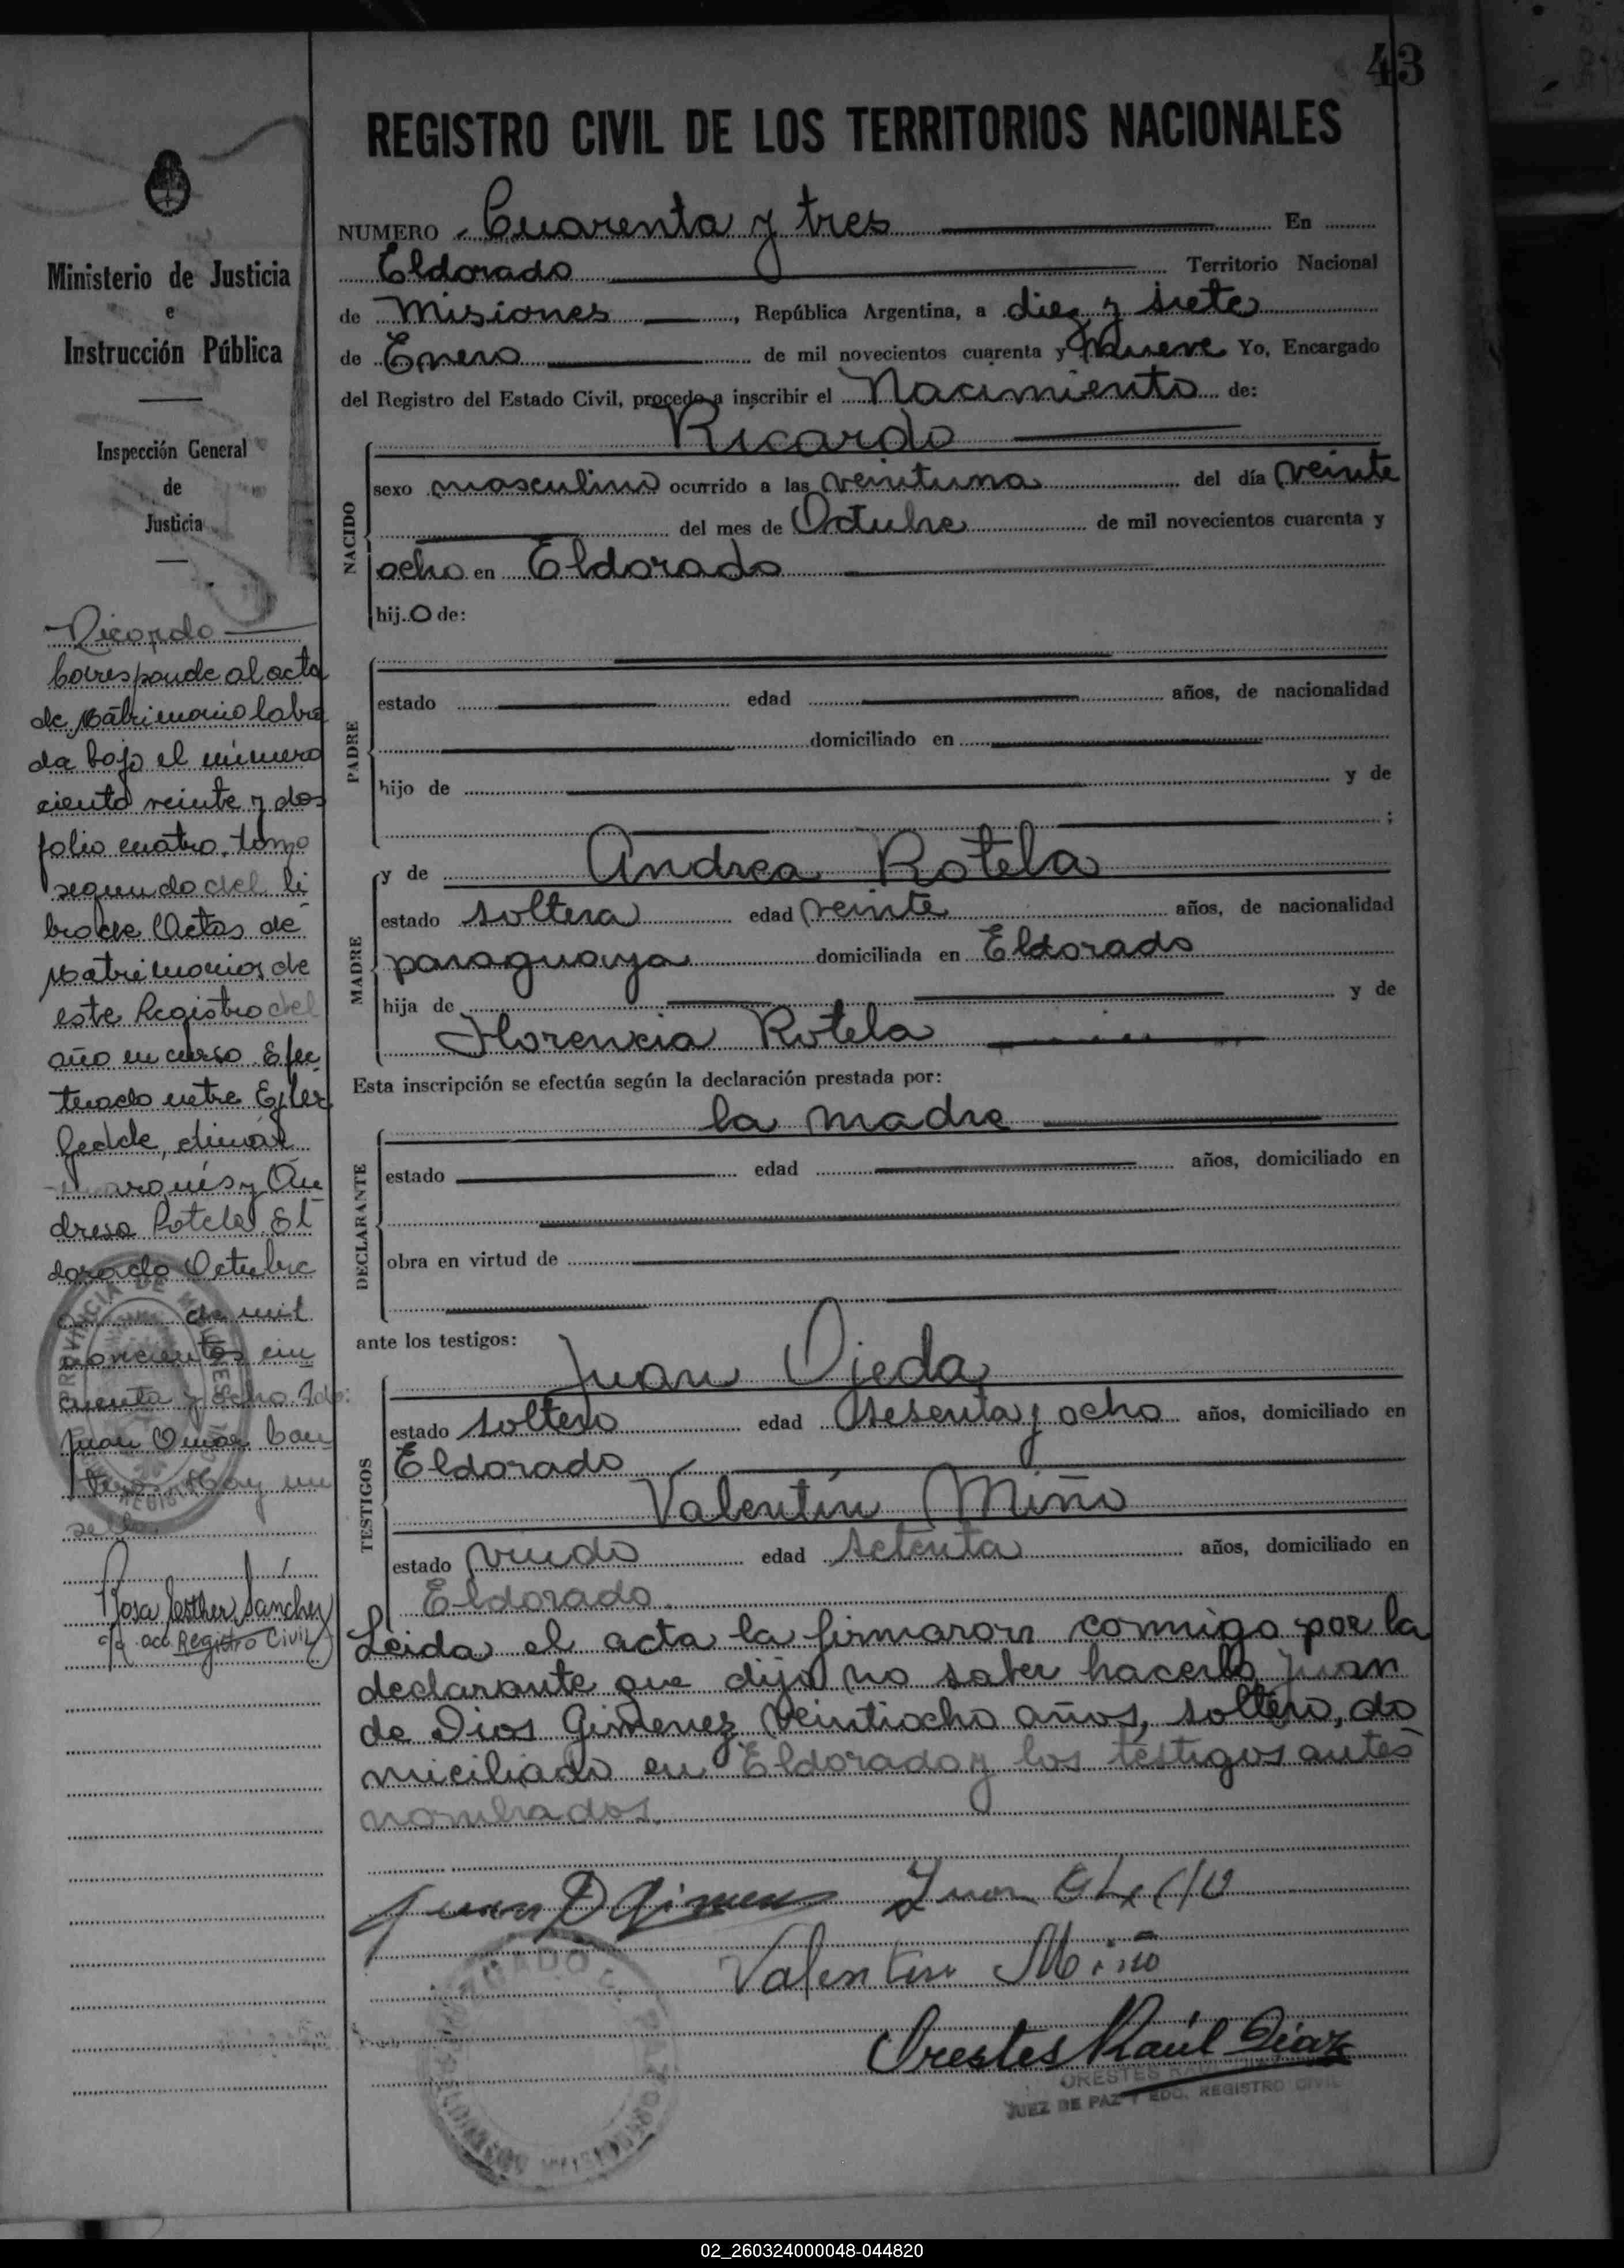 43
REGISTRO CIVIL DE LOS TERRITORIOS NACIONALES
NUMERO Cuarenta y tres En
Eldorado Territorio Nacional
de Misiones, República Argentina, a diez y siete
de Enero de mil novecientos cuarenta y nueve Yo, Encargado
del Registro del Estado Civil, procedo a inscribir el Nacimiento de:
Ricardo
NACIDO
sexo masculino ocurrido a las veintiuna del día veinte
del mes de Octubre de mil novecientos cuarenta y
ocho en Eldorado
hijo de:
PADRE
estado edad años, de nacionalidad
domiciliado en
hijo de y de
;
MADRE
y de Andrea Rotela
estado soltera edad veinte años, de nacionalidad
paraguaya domiciliada en Eldorado
hija de y de
Florencia Rotela
Esta inscripción se efectúa según la declaración prestada por:
la madre
DECLARANTE
estado edad años, domiciliado en
obra en virtud de
ante los testigos:
TESTIGOS
Juan Ojeda
estado soltero edad sesenta y ocho años, domiciliado en
Eldorado
Valentín Miño
estado viudo edad setenta años, domiciliado en
Eldorado
Leida el acta la firmaron conmigo por la
declarante que dijo no saber hacerlo Juan
de Dios Gimenez veintiocho años, soltero, do
miciliado en Eldorado y los testigos antes
nombrados.
Juan D Gimenez
Juan
Valentin Miño
Orestes Raúl Díaz
ORESTES RAUL
JUEZ DE PAZ Y EDO. REGISTRO CIVIL
Ministerio de Justicia
e
Instrucción Pública
Inspección General
de
Justicia
Ricardo
Corresponde al acta
de Matrimonio labra
da bajo el número
ciento veinte y dos
folio cuatro, tomo
segundo del li
bro de Actas de
Matrimonios de
este Registro del
año en curso. Efec
tuado entre
Gedde,
y An
dresa Rotela. El
dorado Octubre
de mil
novecientos cin
cuenta y ocho. Fdo:
Juan Omar Can
teros. Hay un
sello.
Rosa Esther Sánchez
acc. Registro Civil
PROVINCIA DE MISIONES
02_260324000048-044820